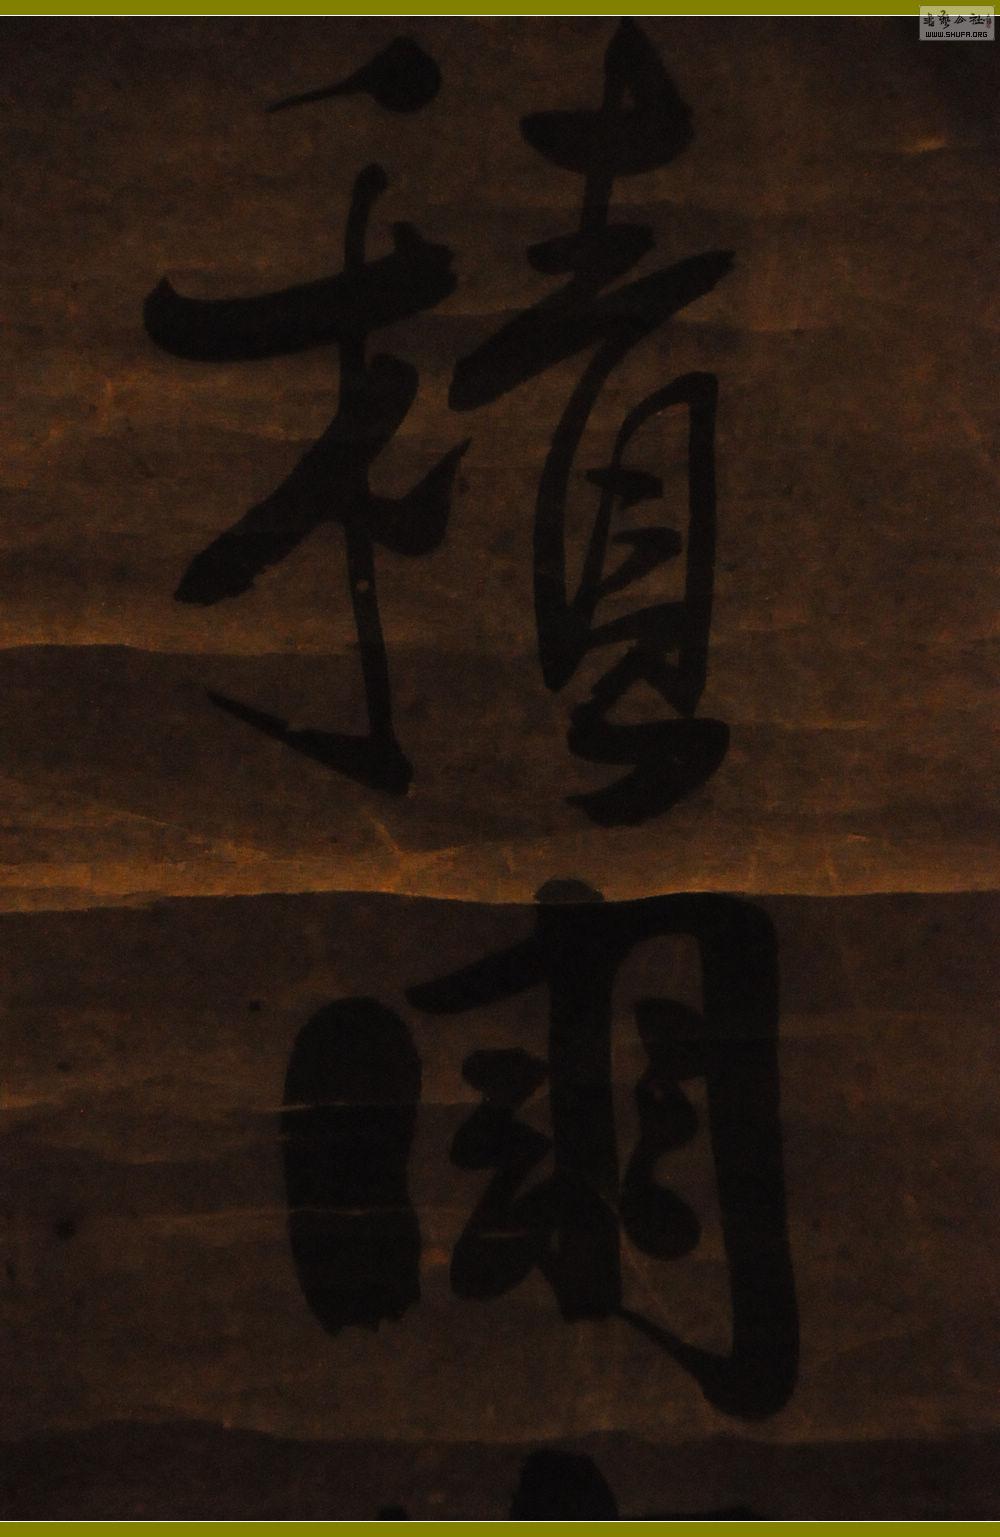 積
雨
書藝公社
WWW.SHUFA.ORG